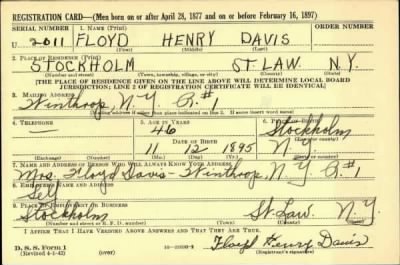 REGISTRATION CARD—(Men born on or after April 28, 1877 and on or before February 16, 1897)
SERIAL NUMBER 1. NAME (Print)
U 2011 FLOYD HENRY DAVIS
(First) (Middle) (Last)
2. PLACE OF RESIDENCE (Print)
STOCKHOLM ST. LAW. N.Y.
(Number and street) (Town, township, village, or city) (County) (State)
[THE PLACE OF RESIDENCE GIVEN ON THE LINE ABOVE WILL DETERMINE LOCAL BOARD
JURISDICTION; LINE 2 OF REGISTRATION CERTIFICATE WILL BE IDENTICAL]
3. MAILING ADDRESS
Winthrop, N.Y. R.#1
[Mailing address if other than place indicated on line 2. If same insert word same]
4. TELEPHONE 5. AGE IN YEARS 6. PLACE OF BIRTH
— 46 Stockholm
DATE OF BIRTH
11 12 1895 N.Y.
(Exchange) (Number) (Mo.) (Day) (Yr.) (State or country)
7. NAME AND ADDRESS OF PERSON WHO WILL ALWAYS KNOW YOUR ADDRESS
Mrs. Floyd Davis - Winthrop, N.Y. R.#1
8. EMPLOYER'S NAME AND ADDRESS
Self
9. PLACE OF EMPLOYMENT OR BUSINESS
Stockholm St. Law. N.Y.
(Number and street or R. F. D. number) (Town) (County) (State)
I AFFIRM THAT I HAVE VERIFIED ABOVE ANSWERS AND THAT THEY ARE TRUE.
D. S. S. Form 1
(Revised 4-1-42) (over) Floyd Henry Davis